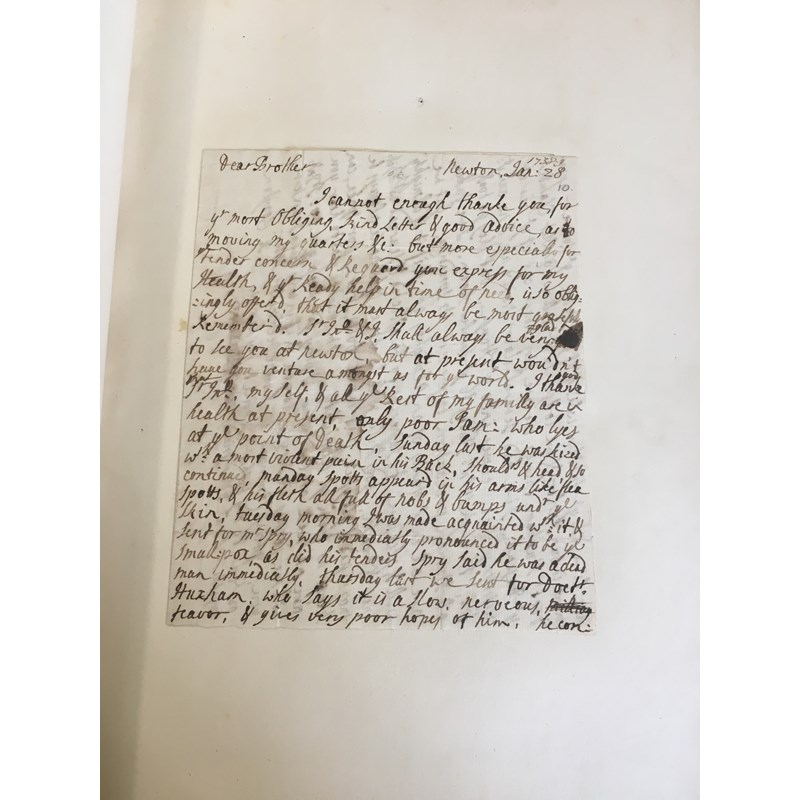 Dear Brother Newton, Jan: 28
10.
I cannot enough thank you for
yr most Obliging, kind Letter & good advice, as to
moving my quarters &c: but more especialy for
tender concern & Reguard you express for my
Health, & yr Ready help in time of need, is so oblig-
=ingly offer'd, that it must always be most gratefuly
Remember'd. Sr Jno & I, shall always be very glad
to see you at newton, but at present wou'dn't
have you venture amongst us for ye world. I thank god
Sr Jno, my self, & all ye Rest of my familly are in
health at present, only poor Sam: who lyes
at ye point of Death, Sunday last he was seized
wth a most violent pain in his Back, Shoulds & head & so
continued, munday spotts appeard in his arms like flea
spotts, & his flesh all full of nobs & bumps undr ye
Skin, tuesday morning I was made acquainted wth it &
sent for mr Spry, who immediatly pronounced it to be ye
Small:pox, as did his tenders, Spry said he was a dead
man immediatly. thursday last we sent for Doctr
Huxham, who says it is a slow, nerveous,
feavor, & gives very poor hopes of him, he com: